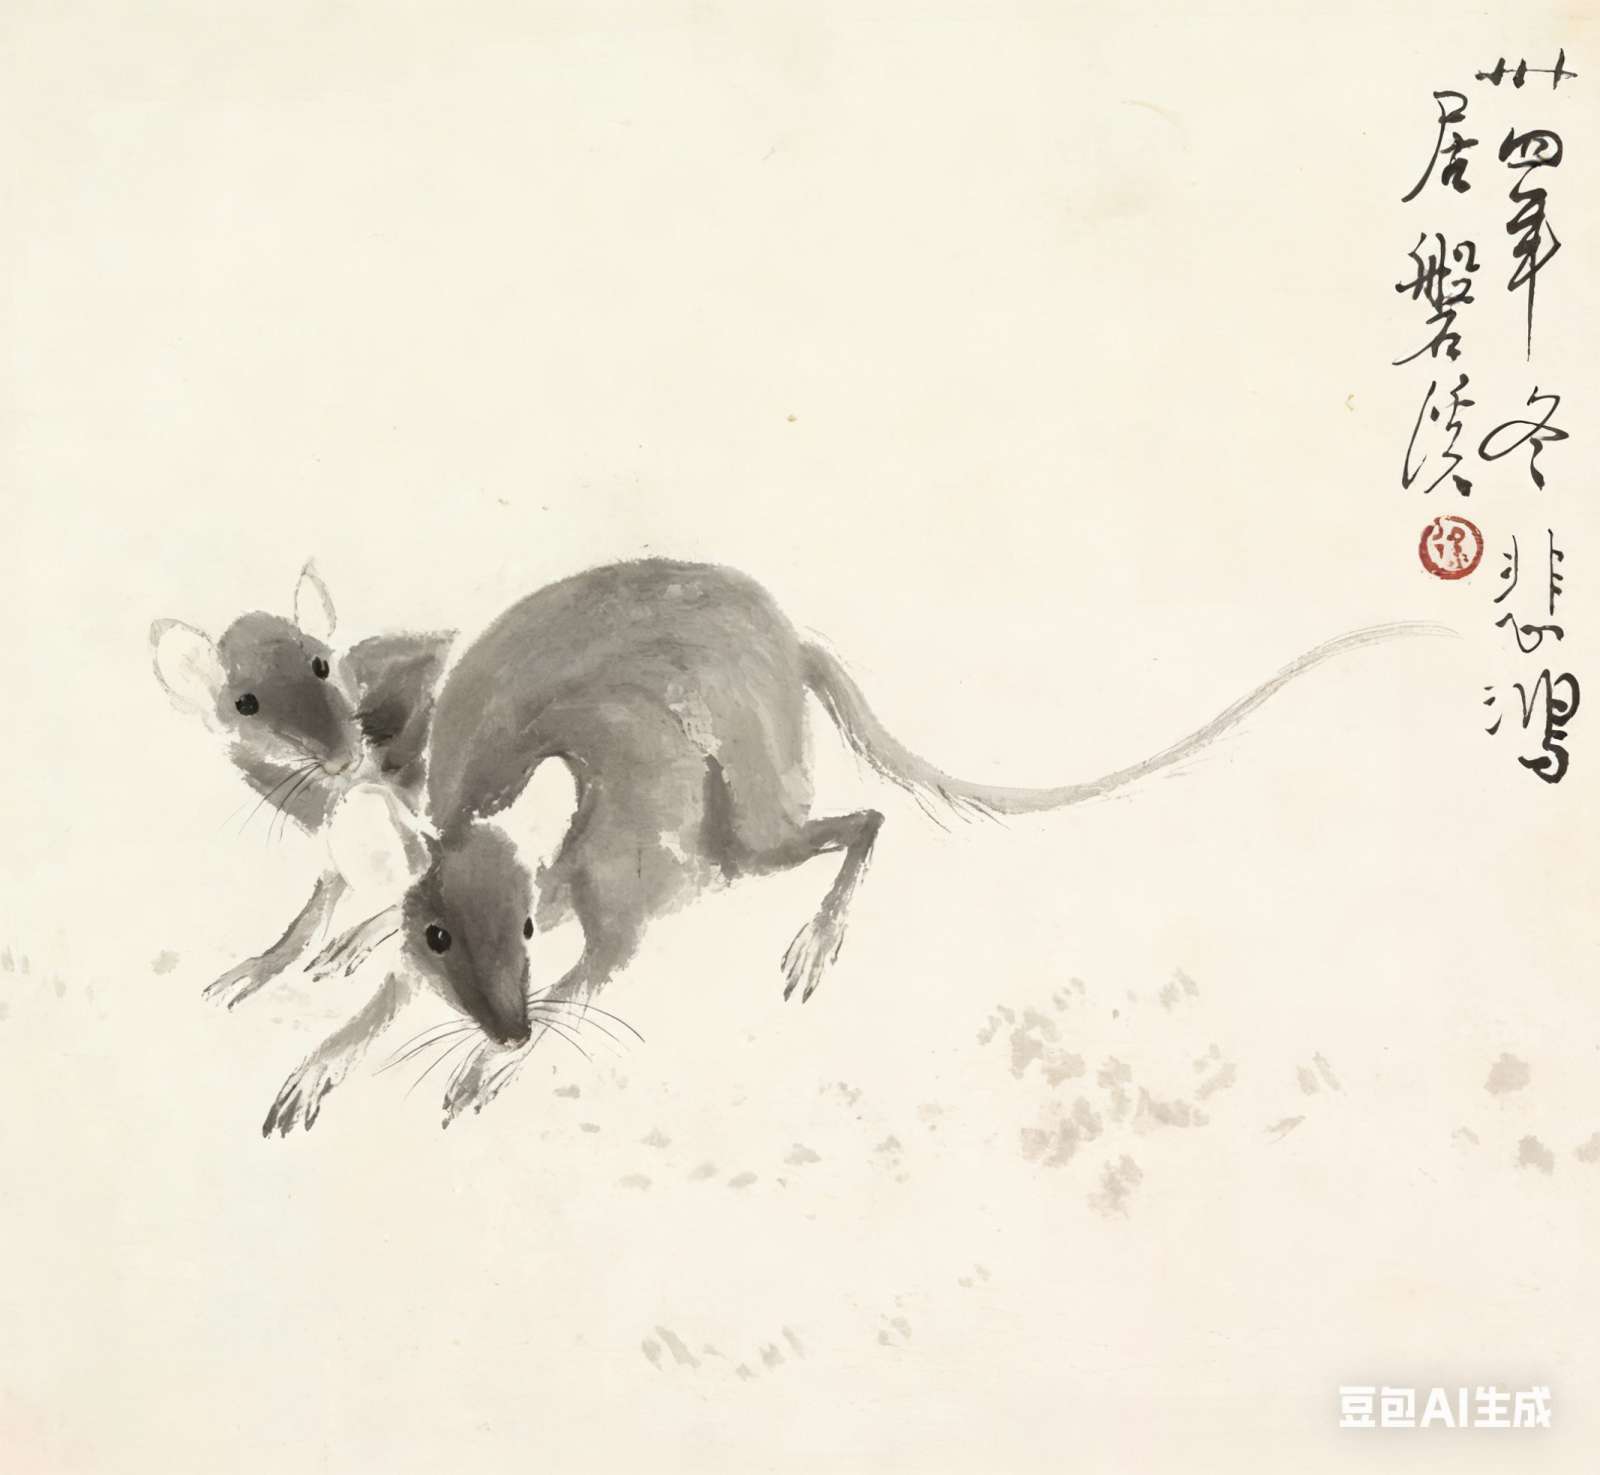 卅四年冬悲鸿
居磐溪
豆包AI生成